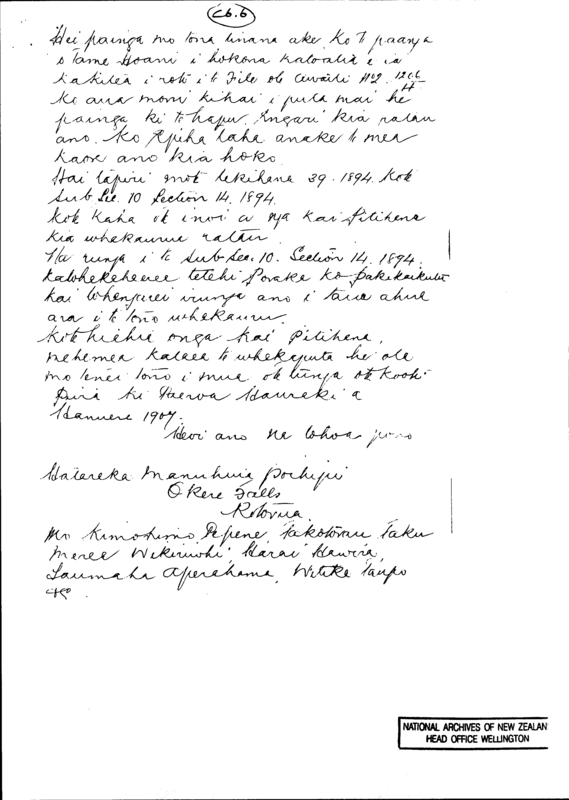 C6.6
Hei painga mo tona tinana ake. Ko te paanga
o Tame Hoani i hokona katoatia e ia
kakitea i roto i te File ote Awaiti No2. 1266
Ko aua moni kihai i puta mai he
painga ki te hapu. Engari kia ratau
ano. Ko Apiha taha anake te mea
kaore ano kia hoko.
Hai tapiri mote tekihana 39. 1894. Kote
Sub Sec. 10 Section 14. 1894.
Kote kaha ote inoi a nga kai pitihana
kia whakauru ratau
Na runga i te Sub Sec. 10. Section 14. 1894.
tetehi Poraka ko
kai irunga ano i taua ahua
ara i te tono whakauru.
Kote hiahia onga kai Pitihana,
mehemea kataea te whakaputa he ota
mo tenei tono i mua ote tunga ote Kooti
Pira ki Paeroa Hauraki a
Hanuere 1907.
Heoi ano Na tohoa pono
Hatareka Manuhuia Pochipi
Okere Falls
Rotorua
Mo Kimohimo Pepene, Takotorau Taku
Meree Wikiriwhi Harai Hawira,
Taumaha Aperahama, Witeke Taupo
NATIONAL ARCHIVES OF NEW ZEALAN
HEAD OFFICE WELLINGTON